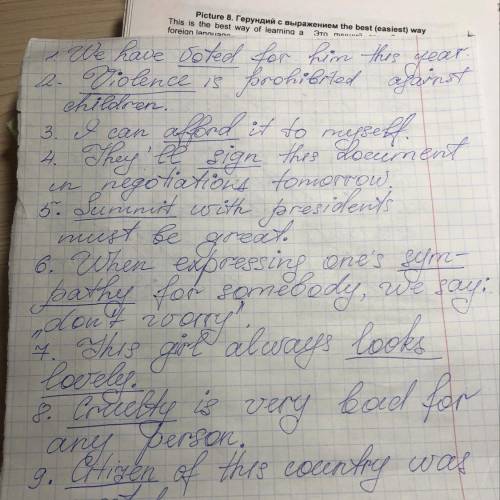 Picture 8. Герундий с выражением the best (easiest) way
This is the best way of learning a
foreign language
1. We have voted for him this year.
2. Violence is prohibited against
children.
3. I can afford it to myself.
4. They'll sign this document
in negotiations tomorrow.
5. Summit with presidents
must be great.
6. When expressing one's sym-
pathy for somebody, we say:
„don't worry".
7. This girl always looks
lovely.
8. Cruelty is very bad for
any person.
9. Citizen of this country was